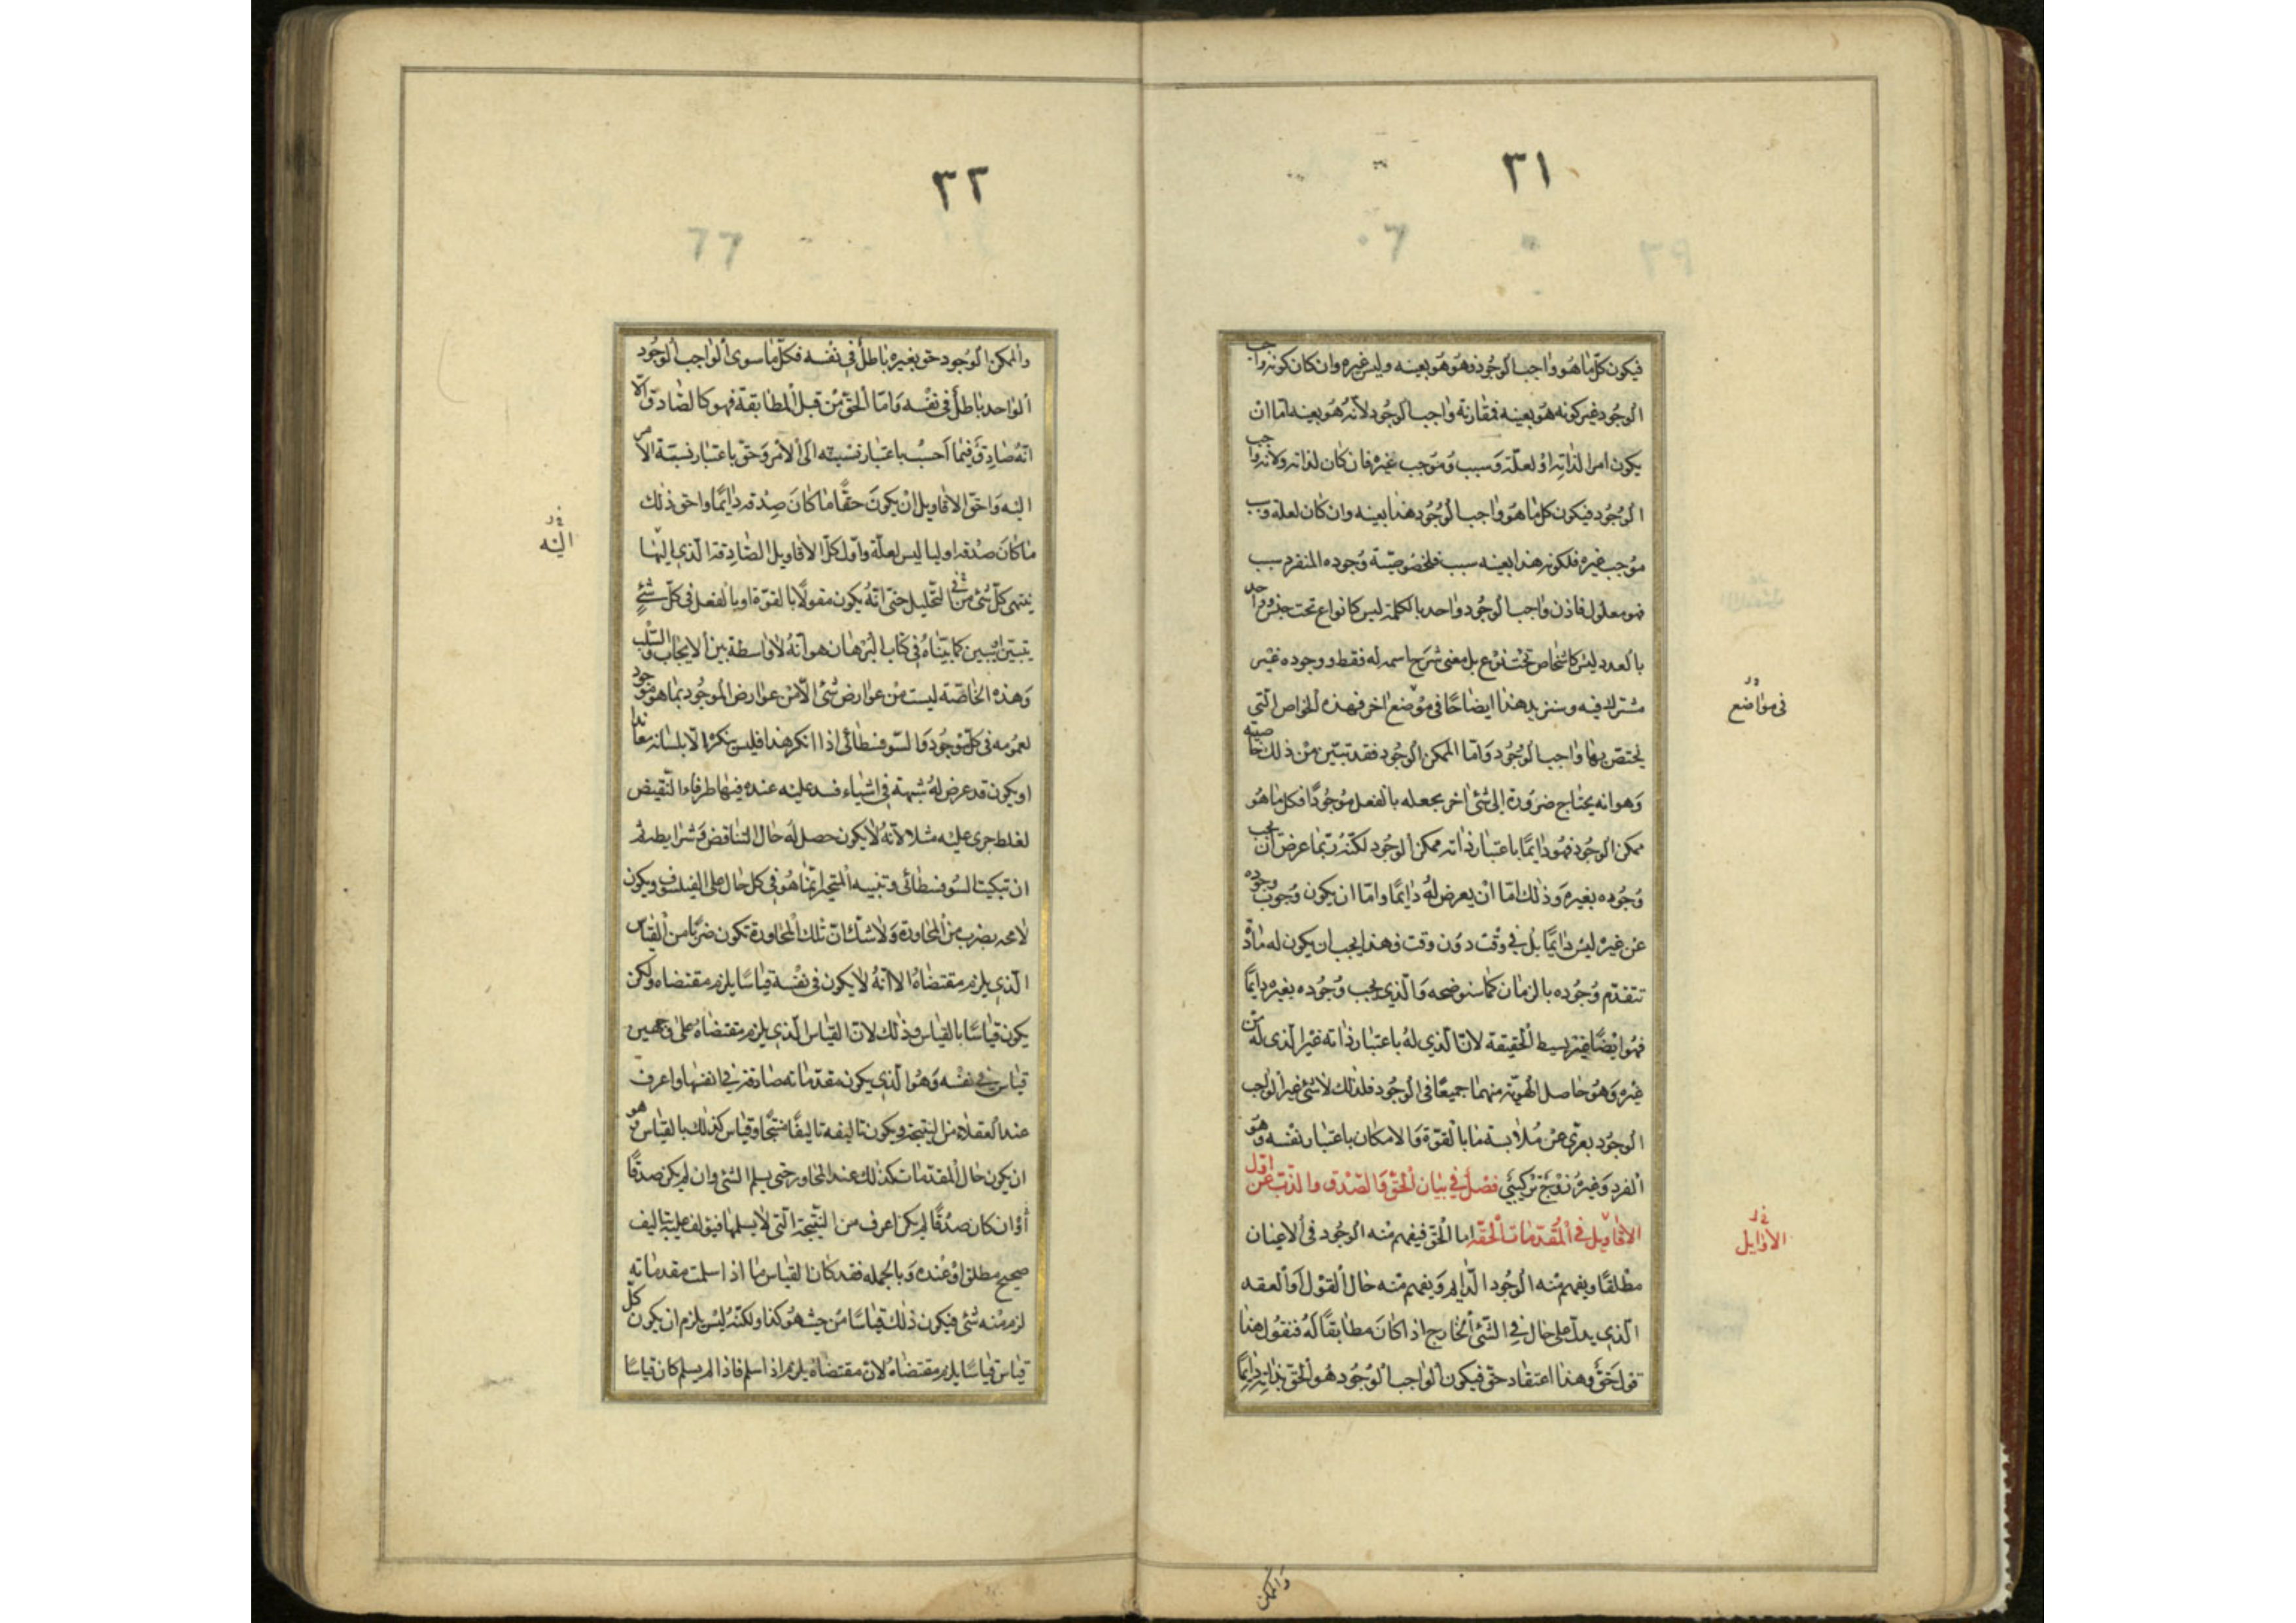 ٣١
فيكون كل ما هو واجب الوجود فهو هو بعينه وليس غيره وان كان كونه واجب
الوجود غير كونه هو بعينه فمقارنة واجب الوجود لانه هو بعينه اما ان
يكون امرا لذاته او لعلة وسبب وموجب غيره فان كان لذاته ولانه واجب
الوجود فيكون كل ما هو واجب الوجود هذا بعينه وان كان لعلة وسبب
موجب غيره فلكونه هذا بعينه سبب فلخصوصية وجوده المنفرد سبب
فهو معلول فاذن واجب الوجود واحد بالكلمة ليس كانواع تحت جنس وواحد
بالعدد ليس كاشخاص تحت نوع بل معنى شرح اسمه له فقط ووجوده غير
مشترك فيه وسنزيد هذا ايضاحا في موضع اخر فهذه الخواص التي
في مواضع
يختص بها واجب الوجود واما الممكن الوجود فقد تبين من ذلك خاصيته
وهو انه يحتاج ضرورة الى شئ اخر يجعله بالفعل موجودا فكل ما هو
ممكن الوجود فهو دايما باعتبار ذاته ممكن الوجود لكنه ربما عرض ان يجب
وجوده بغيره وذلك اما ان يعرض له دايما واما ان يكون وجوب وجوده
عن غيره ليس دايما بل في وقت دون وقت فهذا يجب ان يكون له مادة
تتقدم وجوده بالزمان كما سنوضحه والذي يجب وجوده بغيره دايما
فهو ايضا غير بسيط الحقيقة لان الذي له باعتبار ذاته غير الذي له من
غيره وهو حاصل الهوية منهما جميعا في الوجود فلذلك لا شئ غير الواجب
الوجود يعرى عن ملابسة ما بالقوة والامكان باعتبار نفسه وهو
الفرد وغيره زوج تركيبي فصل في بيان الحق والصدق والذب عن اول
الاقاويل في المقدمات الحقه اما الحق فيفهم منه الوجود في الاعيان
الاوايل
مطلقا ويفهم منه الوجود الدايم ويفهم منه حال القول او العقد
الذي يدل على حال في الشئ الخارج اذا كان مطابقا له فنقول هذا
قول حق وهذا اعتقاد حق فيكون الواجب الوجود هو الحق بذاته دايما
والممكن
٣٢
والممكن الوجود حق بغيره باطل في نفسه فكل ما سوى الواجب الوجود
الواحد باطل في نفسه واما الحق من قبل المطابقة فهو كالصادق الا
انه صادق فيما احسب باعتبار نسبته الى الامر وحق باعتبار نسبة الامر
اليه واحق الاقاويل ان يكون حقا ما كان صدقه دايما واحق ذلك
اليه
ما كان صدقه اوليا ليس لعلة واول كل الاقاويل الصادقة الذي اليها
ينتهى كل شئ في التحليل حتى انه يكون مقولا بالقوة او بالفعل في كل شئ
يتبين كما بيناه في كتاب البرهان هو انه لا واسطة بين الايجاب والسلب
وهذه الخاصة ليست من عوارض شئ الا من عوارض الموجود بما هو موجود
لعمومه في كل موجود والسوفسطائى اذا انكر هذا فليس ينكره الا بلسانه معاندا
او يكون قد عرض له شبهة في اشياء فسد عليه عنده فيها طرفا النقيض
لغلط جرى عليه مثلا لانه لا يكون حصل له حال التناقض وشرايطه ثم
ان تبكيت السوفسطائى وتنبيه المتحير انما هو في كل حال على الفيلسوف ويكون
لا محه بضرب من المحاورة ولا شك ان تلك المحاورة تكون ضربا من القياس
الذي يلزم مقتضاه الا انه لا يكون في نفسه قياسا يلزم مقتضاه ولكن
يكون قياسا بالقياس وذلك لان القياس الذي يلزم مقتضاه على وجهين
قياس في نفسه وهو الذي يكون مقدماته صادقة في انفسها واعرف
عند العقلاء من النتيجة ويكون تاليفه تاليفا منتجا وقياس كذلك بالقياس وهو
ان يكون حال المقدمات كذلك عند المحاور حتى يسلم الشئ وان لم يكن صدقا
او ان كان صدقا لم يكن اعرف من النتيجة التي لا يسلمها فيولف عليه بتاليف
صحيح مطلق او عنده وبالجمله فقد كان القياس ما اذا سلمت مقدماته
لزم منه شئ فيكون ذلك قياسا من حيث هو كذا ولكنه ليس يلزم ان يكون كل
قياس قياسا يلزم مقتضاه لان مقتضاه يلزم اذا سلم فاذا لم يسلم كان قياسا